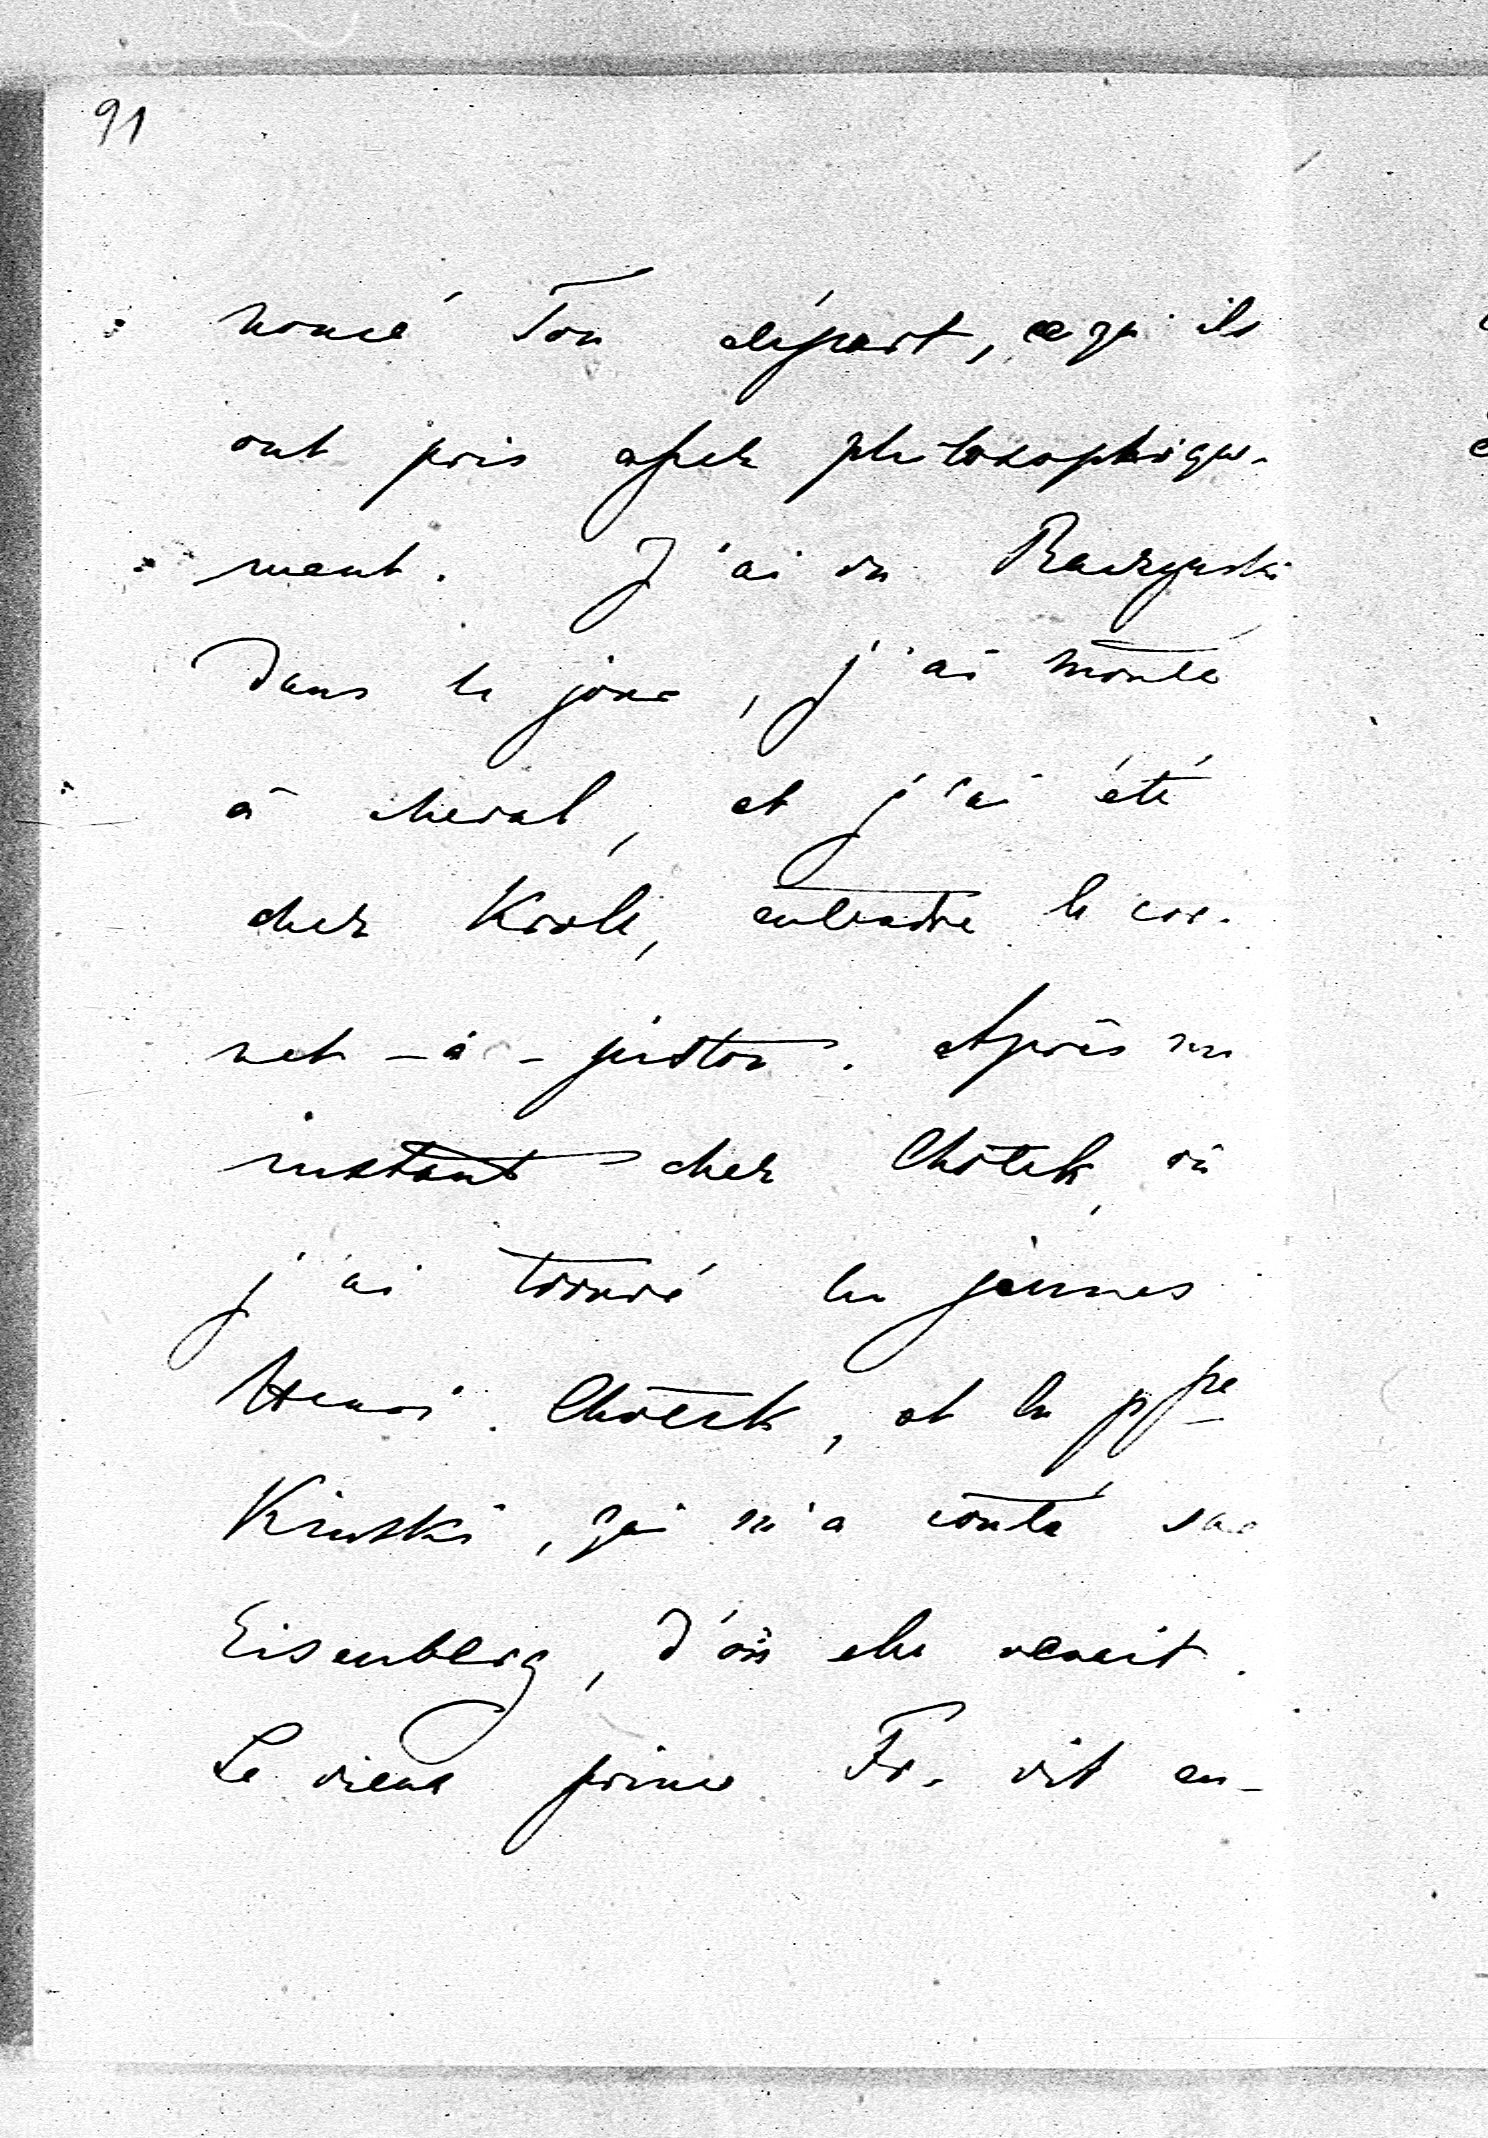 91
noncé Ton départ, ce qu'ils
ont pris assez philosophique-
ment. J'ai vu Raczynski
dans le jour, j'ai monté
à cheval, et j'ai été
chez Kroll, entendre le cor-
net-à-piston. Après un
instant chez Chotek, où
j'ai trouvé les jeunes
Henri Chotek, et la pp^sse
Kinski, qui m'a conté
Eisenberg, d'où elle venait.
Le vieux prince Fr. vit en-